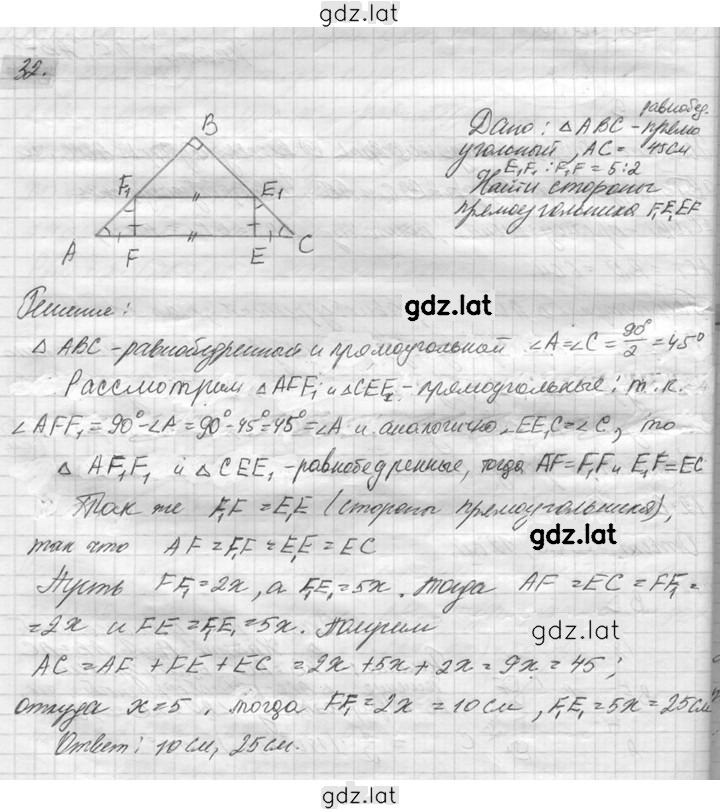 gdz.lat
32.
B
F₁
E₁
A
F
E
C
равнобед.
Дано: △ ABC - прямо
угольный, AC = 45см
E₁F₁ : F₁F = 5:2
Найти стороны
прямоугольника F₁E₁EF
Решение:
gdz.lat
△ ABC - равнобедренный и прямоугольной ∠A=∠C = 90°/2 = 45°
Рассмотрим △AFF₁ и △CEE₂ - прямоугольные: т.к.
∠AFF₁ = 90°-∠A = 90°-45°=45°=∠A и аналогично ∠EE₁C=∠C, то
△ AF₁F₁ и △CEE₁ - равнобедренные, тогда AF=F₁F и E₁F=EC
Так же F₁F = E₁E (стороны прямоугольника),
gdz.lat
так что AF = F₁F = E₁E = EC
Пусть FF₁=2x, а F₁E₁=5x. Тогда AF = EC = FF₁ =
= 2x и FE = F₁E₁=5x. Получим
gdz.lat
AC = AF + FE + EC = 2x + 5x + 2x = 9x = 45;
откуда x=5, тогда FF₁=2x = 10см, F₁E₁=5x=25см
Ответ: 10см, 25см.
gdz.lat